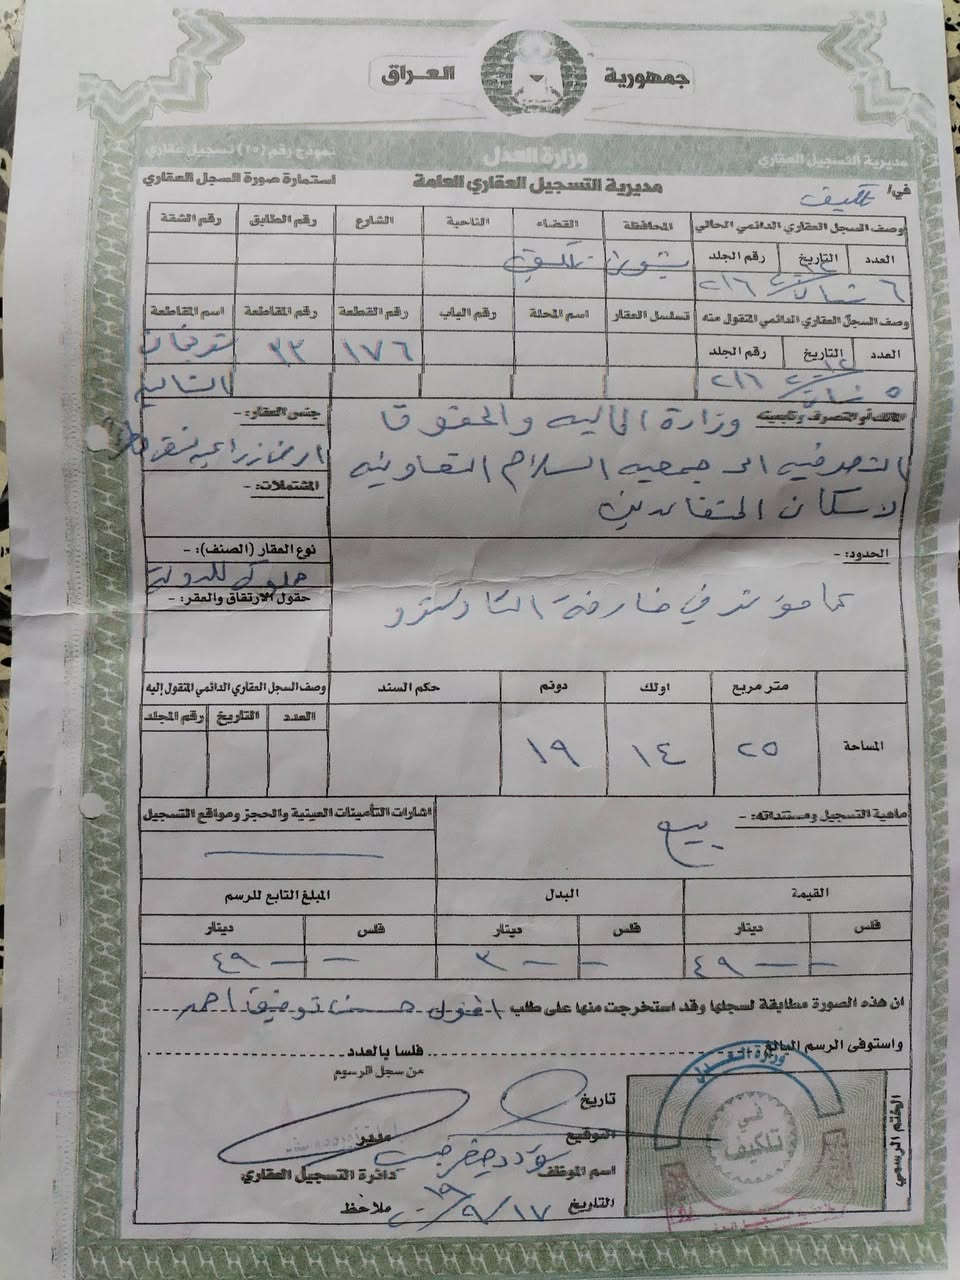 جمهورية العراق
مديرية التسجيل العقاري وزارة العدل نموذج رقم (٢٥) تسجيل عقاري
في/ تلكيف مديرية التسجيل العقاري العامة استمارة صورة السجل العقاري
وصف السجل العقاري الدائمي الحالي المحافظة القضاء الناحية الشارع رقم الطابق رقم الشقة
العدد التاريخ رقم الجلد نينوى تلكيف
٦ ٢١٦
وصف السجل العقاري الدائمي المنقول منه تسلسل العقار اسم المحلة رقم الباب رقم القطعة رقم المقاطعة اسم المقاطعة
العدد التاريخ رقم الجلد ١٧٦ ٣٢
٥ ٢١٦ الشمالية
المالك أو المتصرف وتابعيته وزارة المالية والحقوق
التصرفية الى جمعية السلام التعاونية
لاسكان المتقاعدين
جنس العقار: -
ارض زراعية
المشتملات: -
نوع العقار (الصنف): -
مملوكة للدولة
حقول الارتفاق والعقر: -
الحدود: -
كما مؤشر في خارطة الكادسترو
متر مربع اولك دونم حكم السند وصف السجل العقاري الدائمي المنقول إليه
العدد التاريخ رقم المجلد
المساحة ٢٥ ١٤ ١٩
ماهية التسجيل ومستنداته: - بيع
اشارات التأمينات العينية والحجز ومواقع التسجيل
القيمة البدل المبلغ التابع للرسم
فلس دينار فلس دينار فلس دينار
- ٤٩ - - - ٣ - - - ٤٩ - -
ان هذه الصورة مطابقة لسجلها وقد استخرجت منها على طلب حسن توفيق احمد
واستوفى الرسم البالغ فلسا بالعدد
من سجل الرسوم
تاريخ
التوقيع مدير
اسم الموظف دائرة التسجيل العقاري
التاريخ ١٧/٩ ملاحظ
الختم الرسمي
وزارة العدل
في
تلكيف